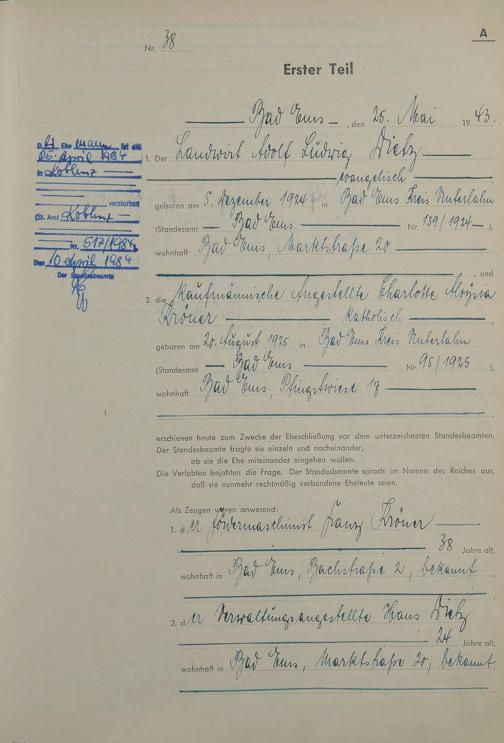 A
Nr. 38
Erster Teil
Bad Ems, den 25. Mai 1943.
1. Der Landwirt Adolf Ludwig Dietz
evangelisch
geboren am 5. Dezember 1924 in Bad Ems Kreis Unterlahn
(Standesamt Bad Ems Nr. 139/1924),
wohnhaft Bad Ems, Marktstraße 20
und
2. die kaufmännische Angestellte Charlotte Aloysia
Kröner katholisch
geboren am 20. August 1925 in Bad Ems Kreis Unterlahn
(Standesamt Bad Ems Nr. 95/1925),
wohnhaft Bad Ems, Pfingstwiese
erschienen heute zum Zwecke der Eheschließung vor dem unterzeichneten Standesbeamten.
Der Standesbeamte fragte sie einzeln und nacheinander,
ob sie die Ehe miteinander eingehen wollen.
Die Verlobten bejahten die Frage. Der Standesbeamte sprach im Namen des Reiches aus,
daß sie nunmehr rechtmäßig verbundene Eheleute seien.
Als Zeugen waren anwesend:
1. der Fördermaschinist Franz Kröner
38 Jahre alt,
wohnhaft in Bad Ems, Bachstraße 2, bekannt
2. der Verwaltungsangestellte Hans Dietz
24 Jahre alt,
wohnhaft in Bad Ems, Marktstraße 20, bekannt.
Ehemann ist am
05. April 1984
in Koblenz
verstorben
(St. Amt Koblenz
Nr. 517/1984
Den 10 April 1984
Der Standesbeamte